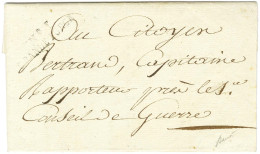 Au Citoyen
Bertrand, Capitaine
Rapporteur près le 1.er
Conseil de Guerre